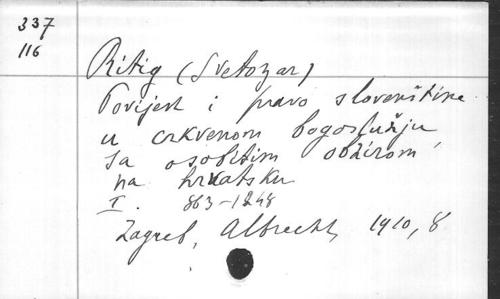 337
116
Ritig (Svetozar)
Povijest i pravo slovenštine
u crkvenom bogoslužju,
sa osobitim obzirom
na hrvatsku
I. 863-1248
Zagreb, Albrecht, 1910, 8